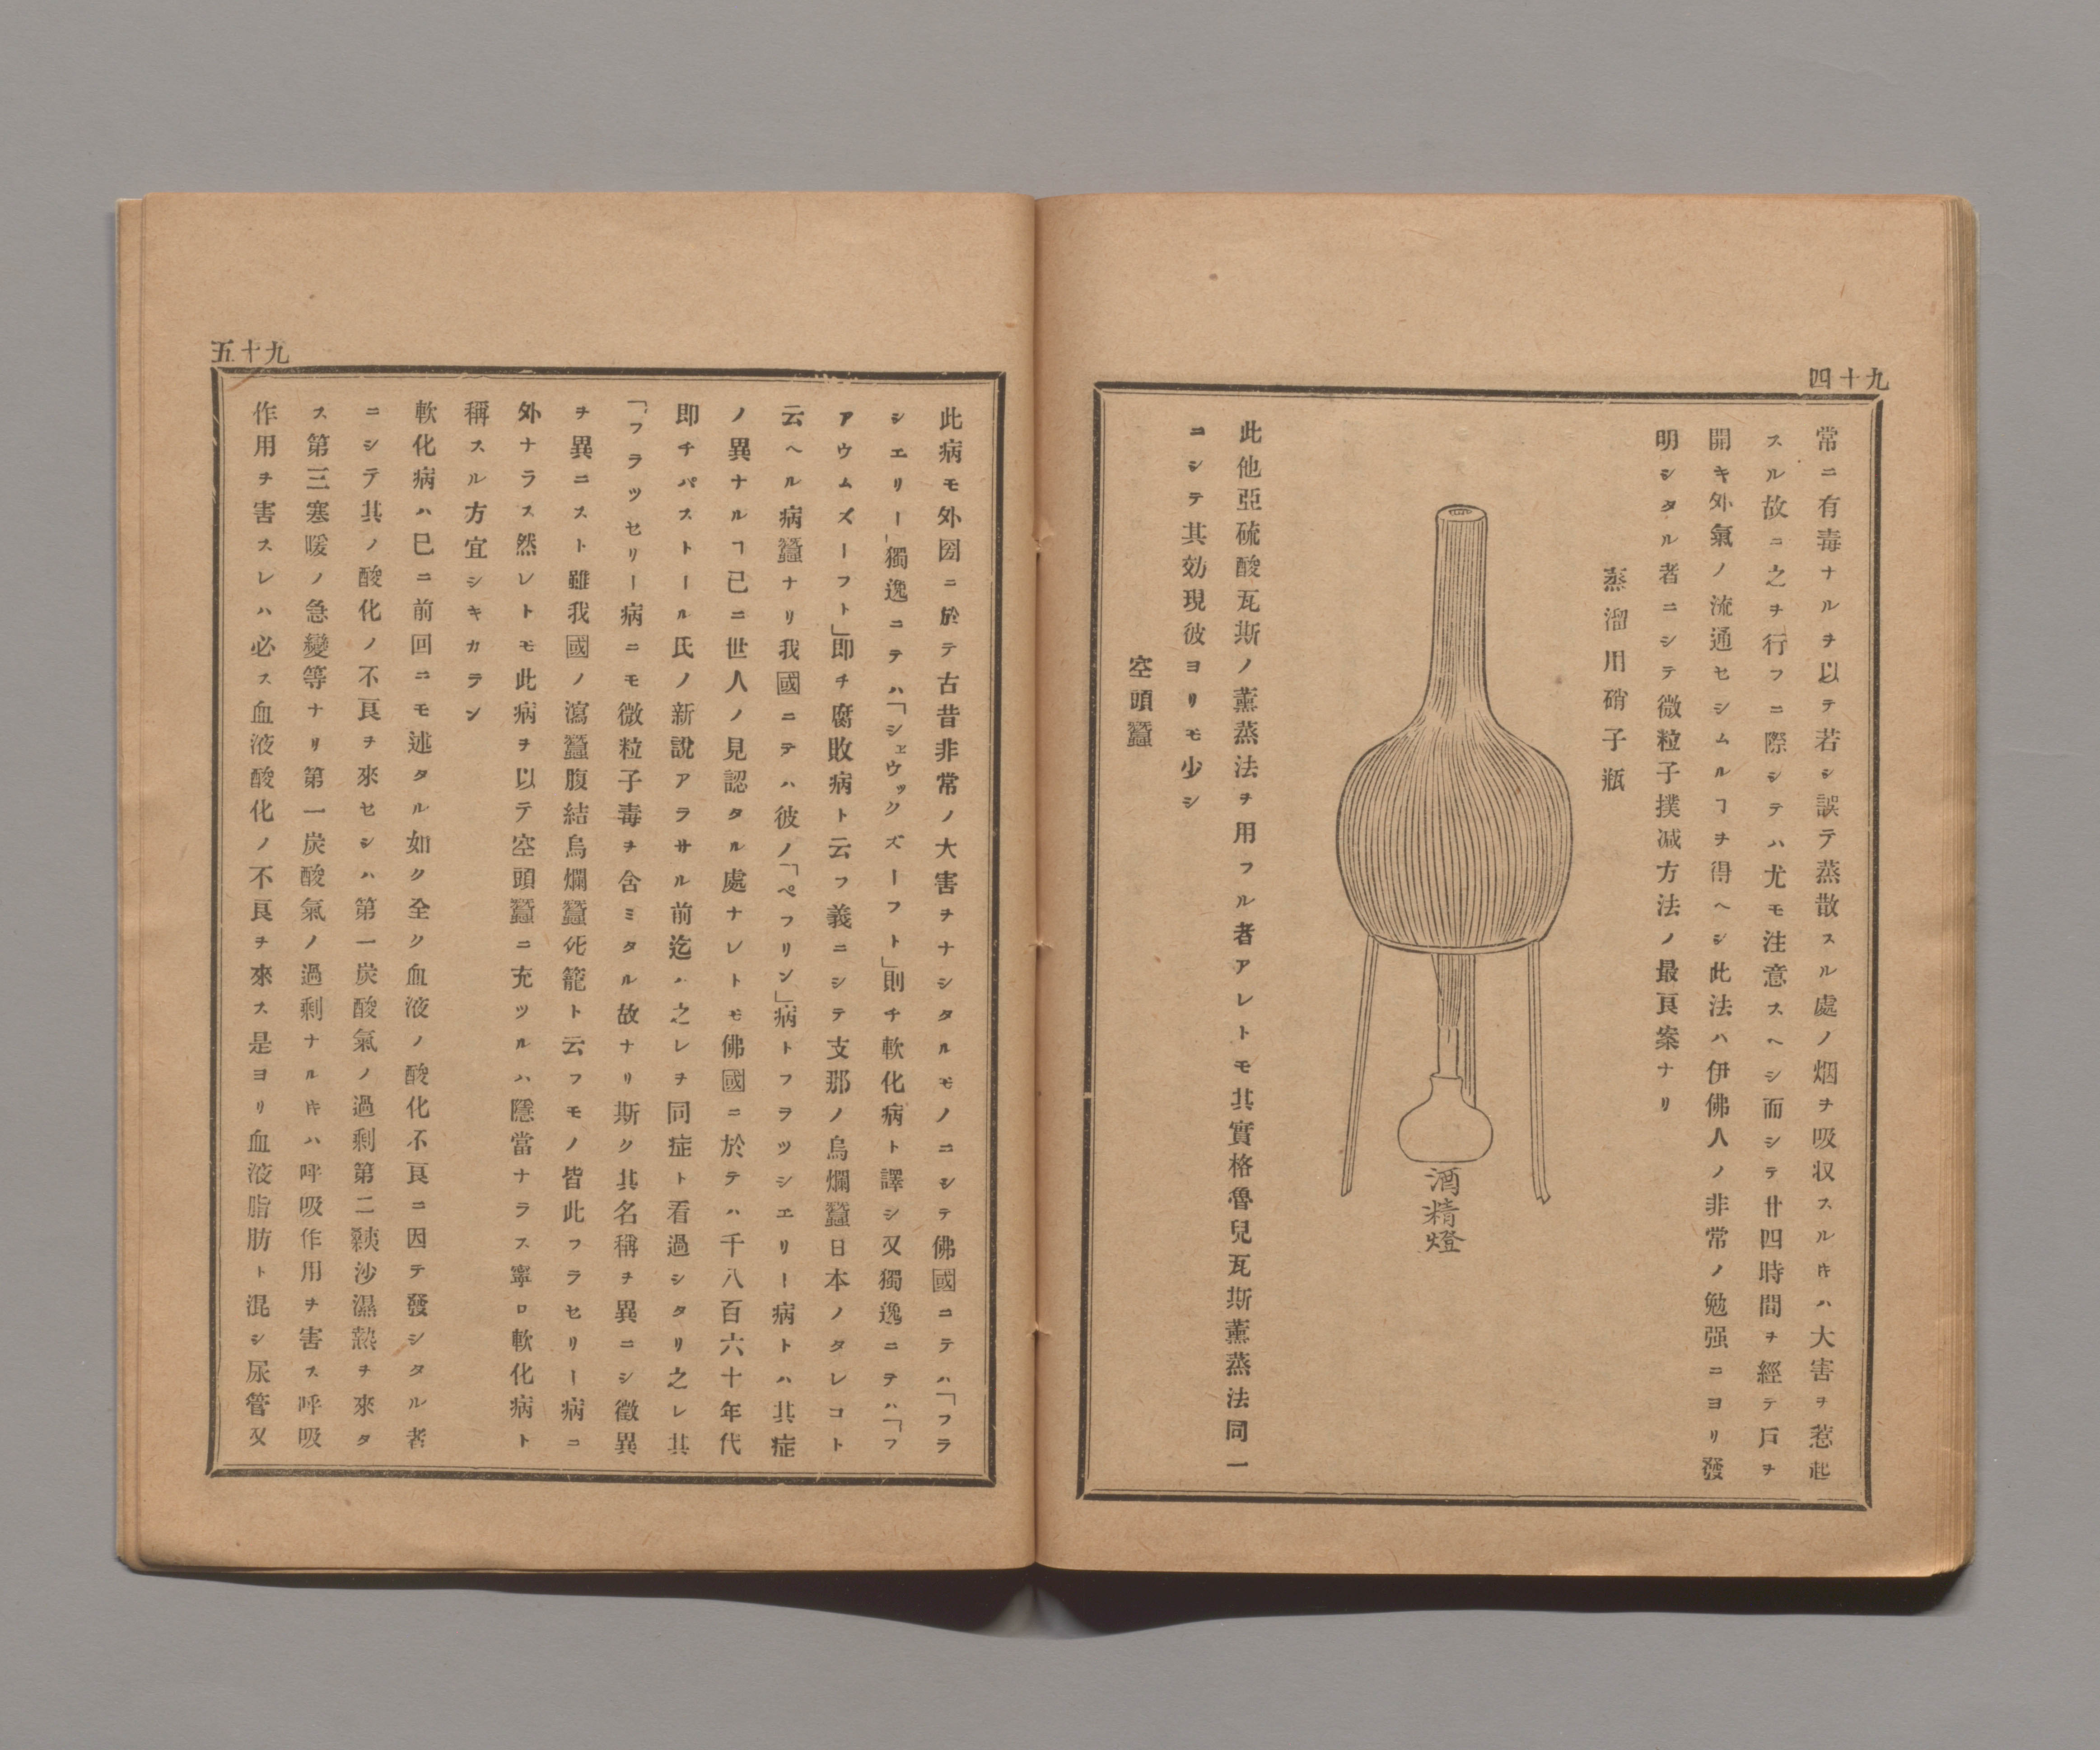 九十四
常ニ有毒ナルヲ以テ若シ誤テ蒸散スル處ノ烟ヲ吸収スルㇳキハ大害ヲ惹起
スル故ニ之ヲ行フニ際シテハ尤モ注意スヘシ而シテ廿四時間ヲ經テ戸ヲ
開キ外氣ノ流通セシムルヿヲ得ヘシ此法ハ伊佛人ノ非常ノ勉强ニヨリ發
明シタル者ニシテ微粒子撲减方法ノ最良案ナリ
蒸溜用硝子瓶
酒精燈
此他亞硫酸瓦斯ノ薰蒸法ヲ用フル者アレトモ其實格魯兒瓦斯薰蒸法同一
ニシテ其効現彼ヨリモ少シ
空頭蠶
九十五
此病モ外圀ニ於テ古昔非常ノ大害ヲナシタルモノニシテ佛國ニテハ「フラ
シエリー」獨逸ニテハ「シェウックズーフト」則チ軟化病ト譯シ又獨逸ニテハ「フ
アウムズーフト」即チ腐敗病ト云フ義ニシテ支那ノ烏爛蠶日本ノタレコト
云ヘル病蠶ナリ我國ニテハ彼ノ「ペフリン」病トフラツシエリー病トハ其症
ノ異ナルヿ己ニ世人ノ見認タル處ナレトモ佛國ニ於テハ千八百六十年代
即チパストール氏ノ新說アラサル前迄ハ之レヲ同症ト看過シタリ之レ其
「フラツセリー病ニモ微粒子毒ヲ含ミタル故ナリ斯ク其名稱ヲ異ニシ徵異
ヲ異ニスト雖我國ノ瀉蠶腹結烏爛蠶死籠ト云フモノ皆此フラセリー病ニ
外ナラス然レトモ此病ヲ以テ空頭蠶ニ充ツルハ隱當ナラス寧ロ軟化病ト
稱スル方宜シキカラン
軟化病ハ已ニ前回ニモ述タル如ク全ク血液ノ酸化不良ニ因テ發シタル者
ニシテ其ノ酸化ノ不良ヲ來セシハ第一炭酸氣ノ過剩第二蟻沙濕熱ヲ來タ
ス第三寒暖ノ急變等ナリ第一炭酸氣ノ過剩ナルㇳキハ呼吸作用ヲ害ス呼吸
作用ヲ害スレハ必ス血液酸化ノ不良ヲ來ス是ヨリ血液脂肪ト混シ尿管又